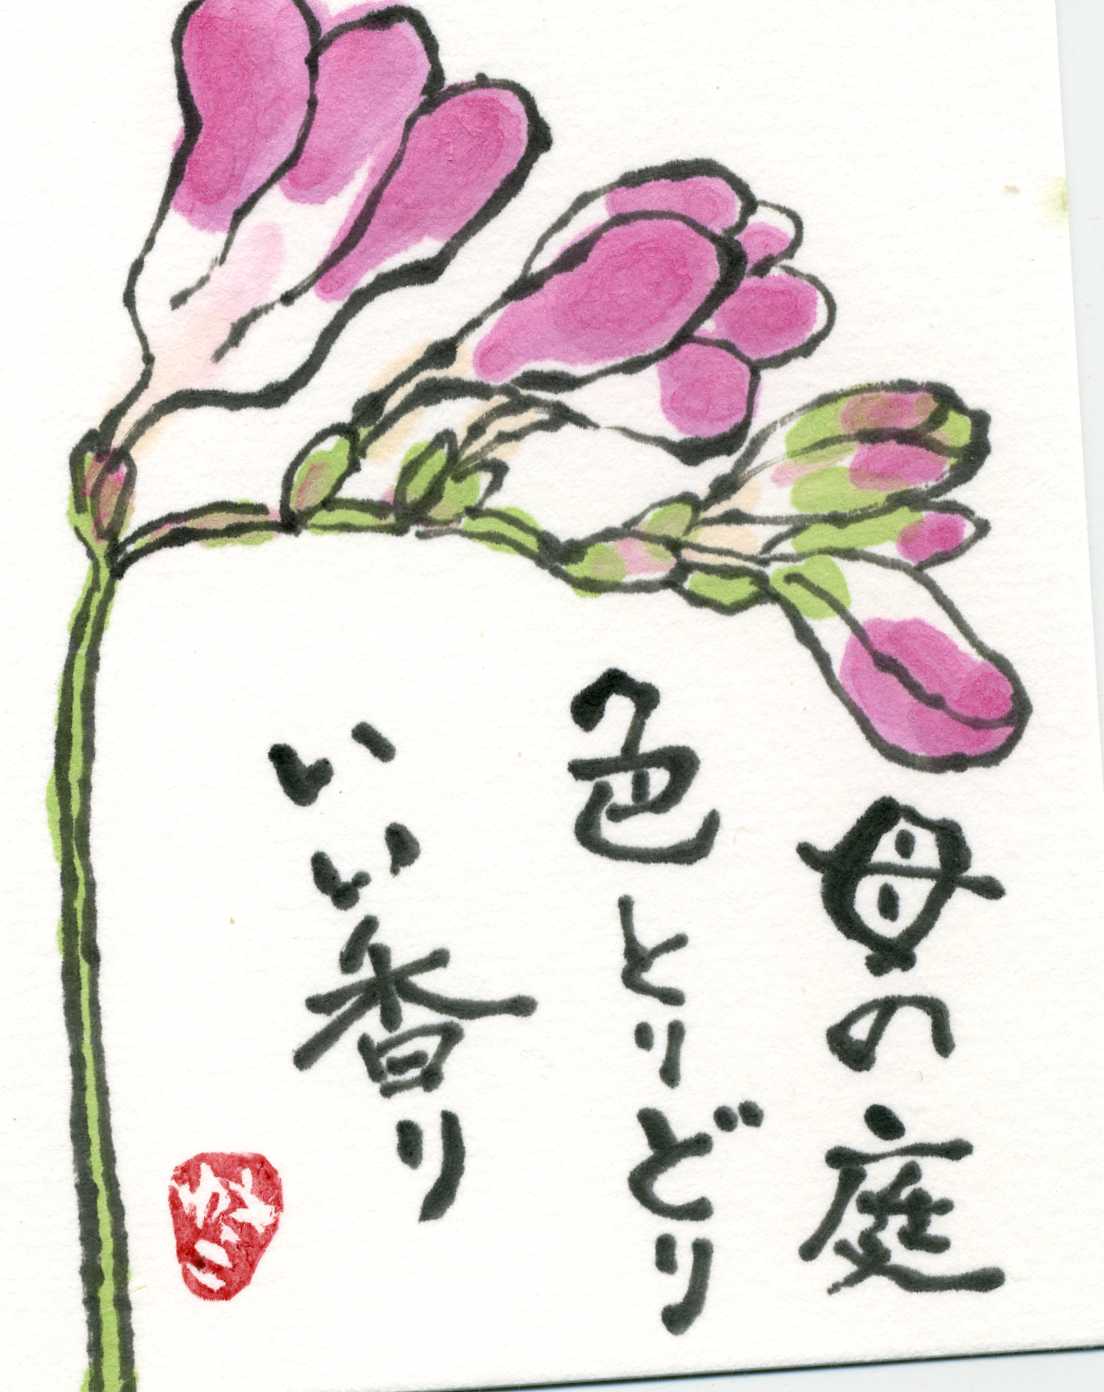 母の庭
色とりどり
いい香り